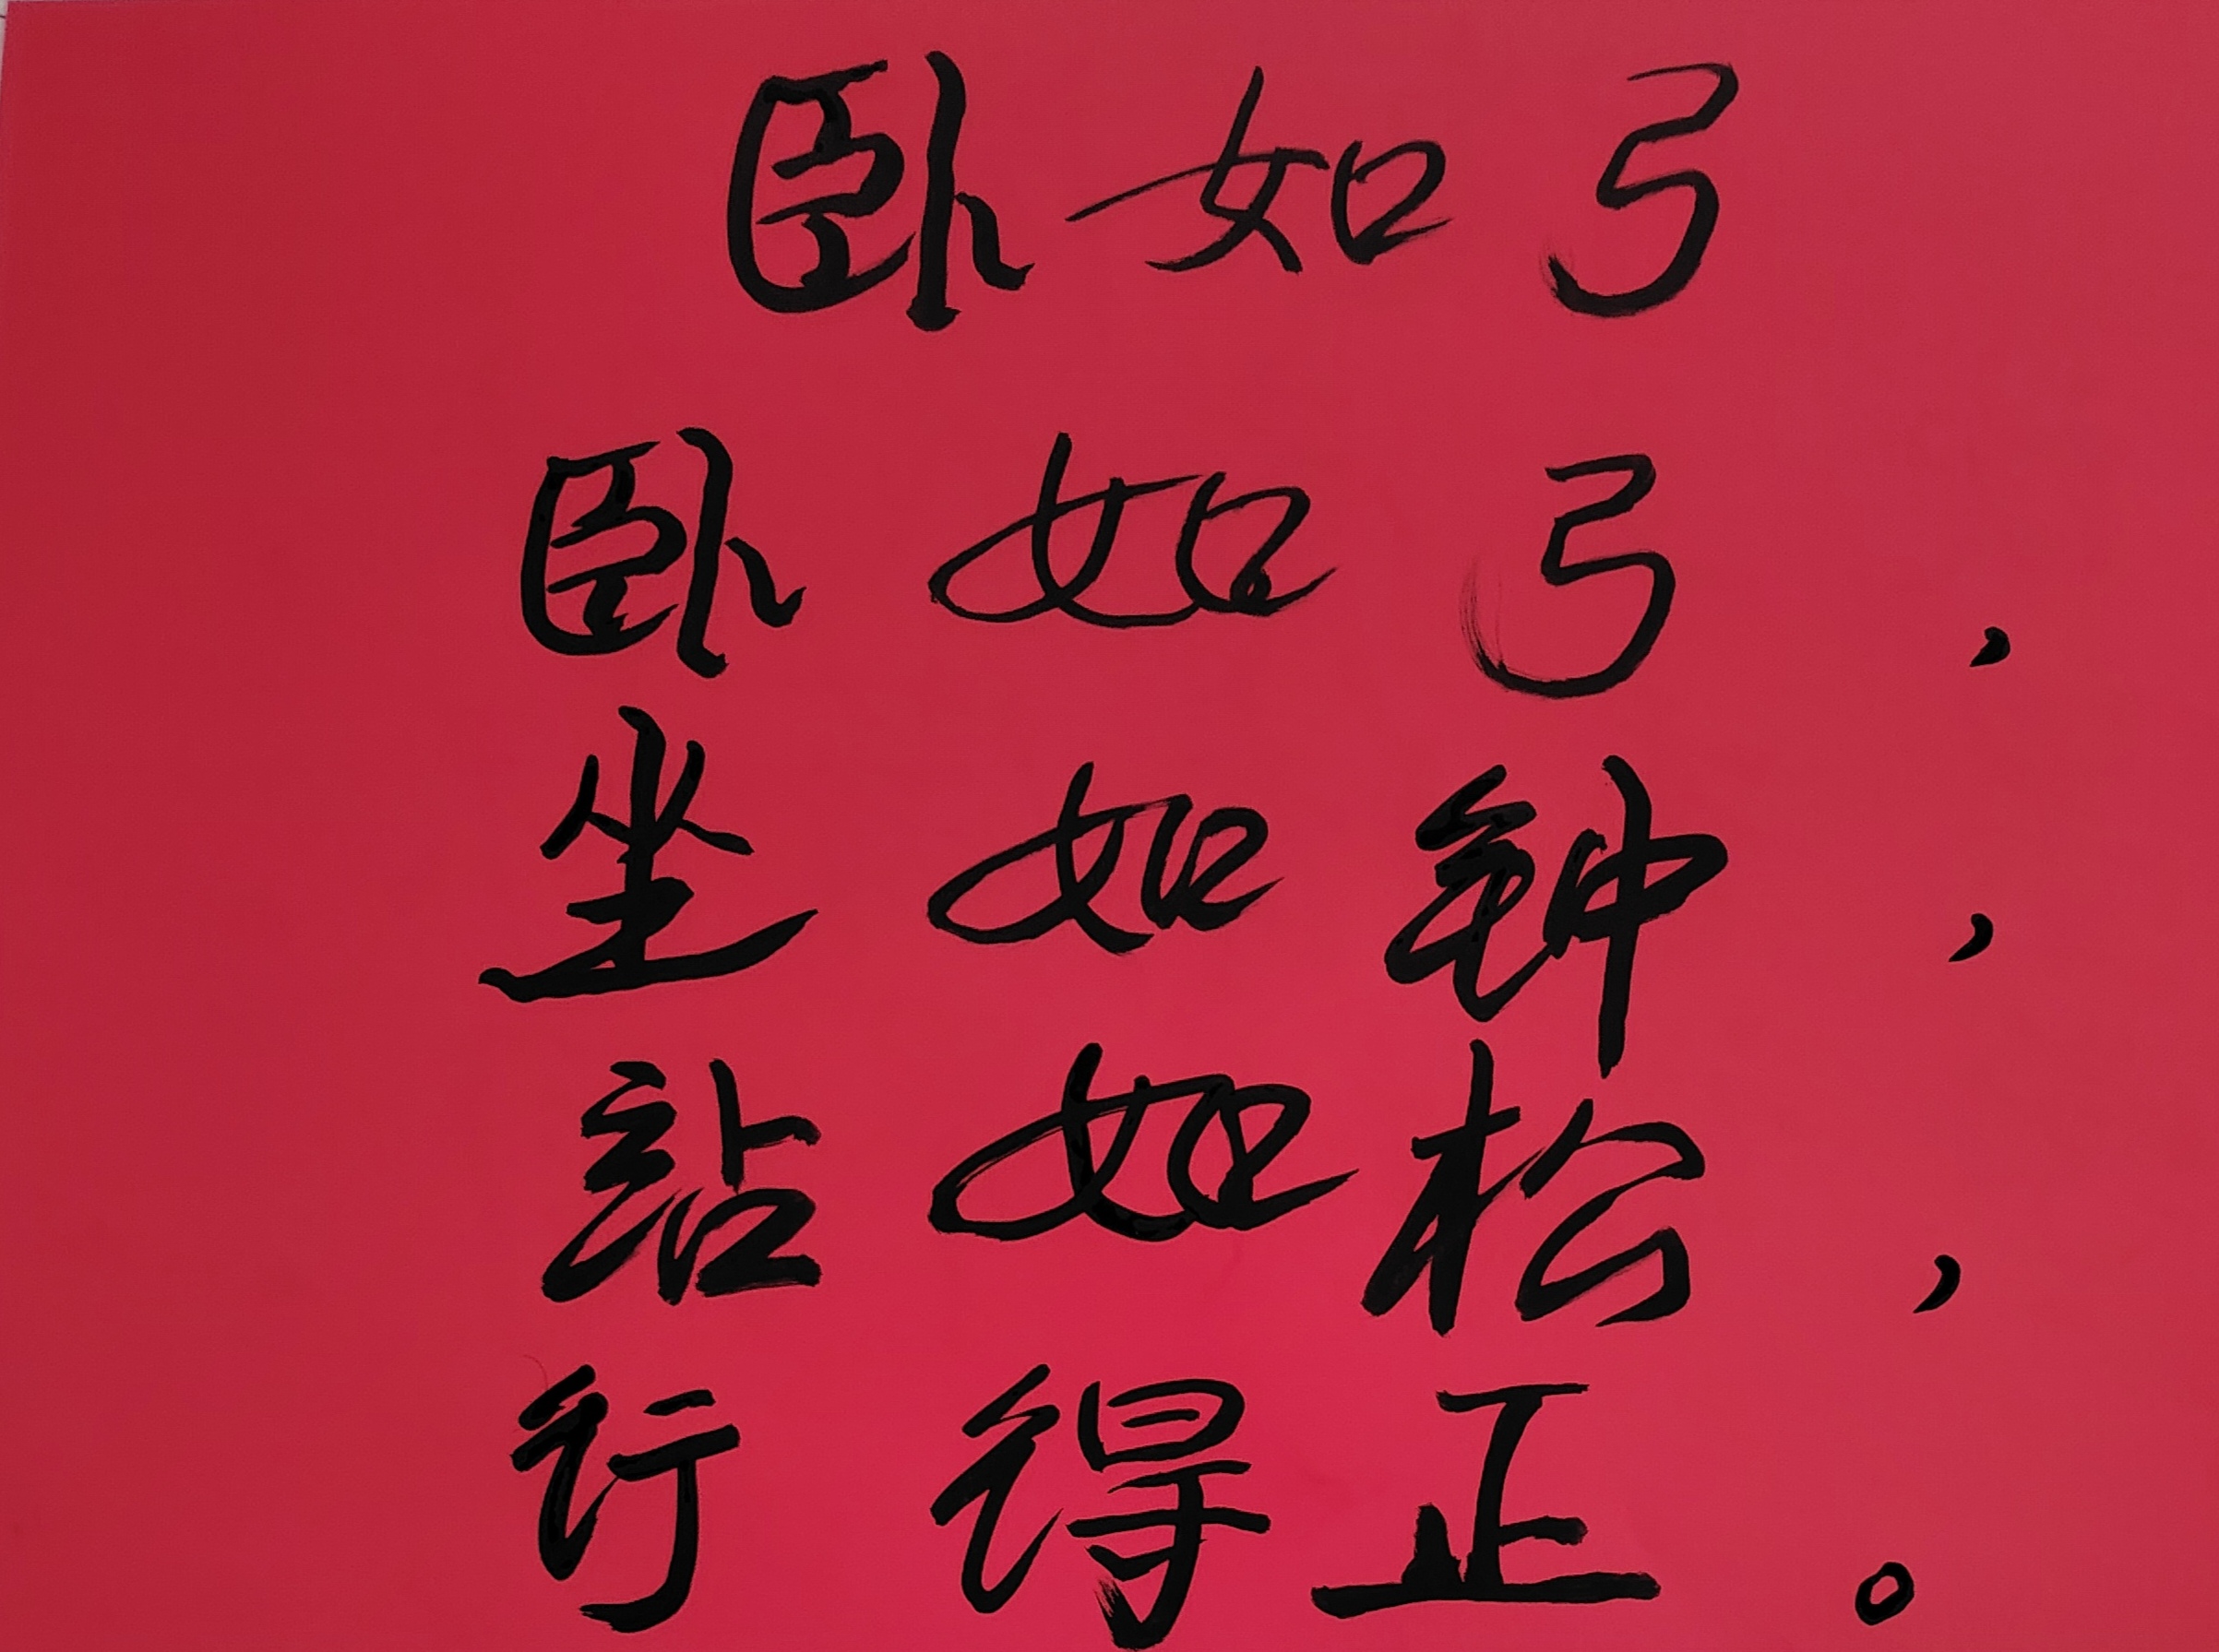 卧如弓
卧如弓，
坐如钟，
站如松，
行得正。